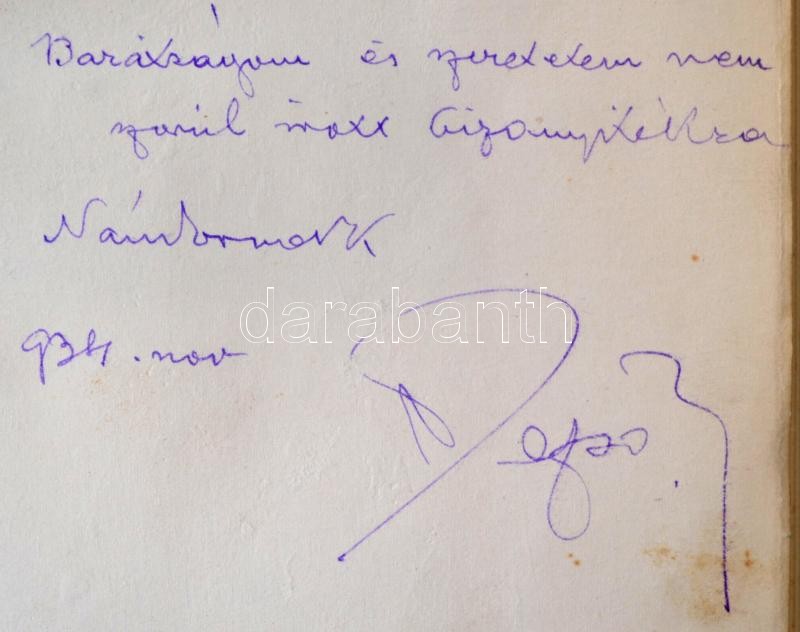 Barátságom és szeretetem nem
szorúl írott bizonyítékra
Nándornak
934. nov
darabanth
Dezső